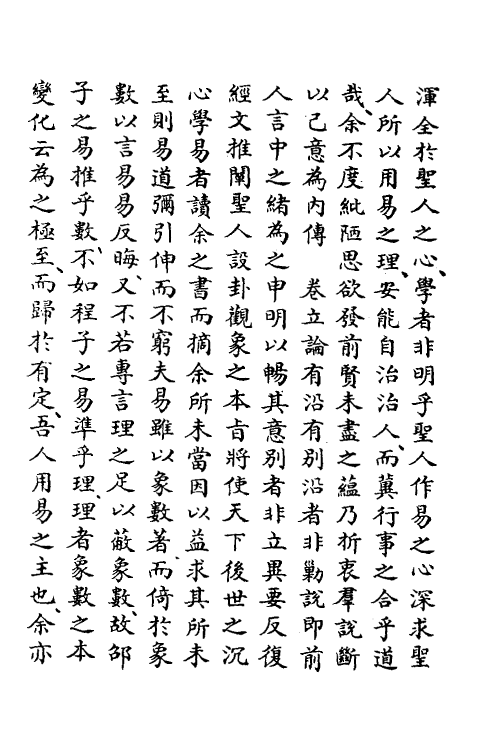 渾全於聖人之心、學者非明乎聖人作易之心深求聖
人所以用易之理、安能自治治人、而冀行事之合乎道
哉、余不度紕陋思欲發前賢未盡之蘊乃折衷羣説斷
以己意為内傳　卷立論有沿有别沿者非勦説即前
人言中之緒為之申明以暢其意别者非立異要反復
經文推闡聖人設卦觀象之本旨將使天下後世之沉
心學易者讀余之書而摘余所未當因以益求其所未
至則易道彌引伸而不窮夫易雖以象數著、而倚於象
數以言易易反晦、又不若專言理之足以蔽象數、故邵
子之易推乎數、不如程子之易準乎理、理者象數之本
變化云為之極至、而歸於有定、吾人用易之主也、余亦